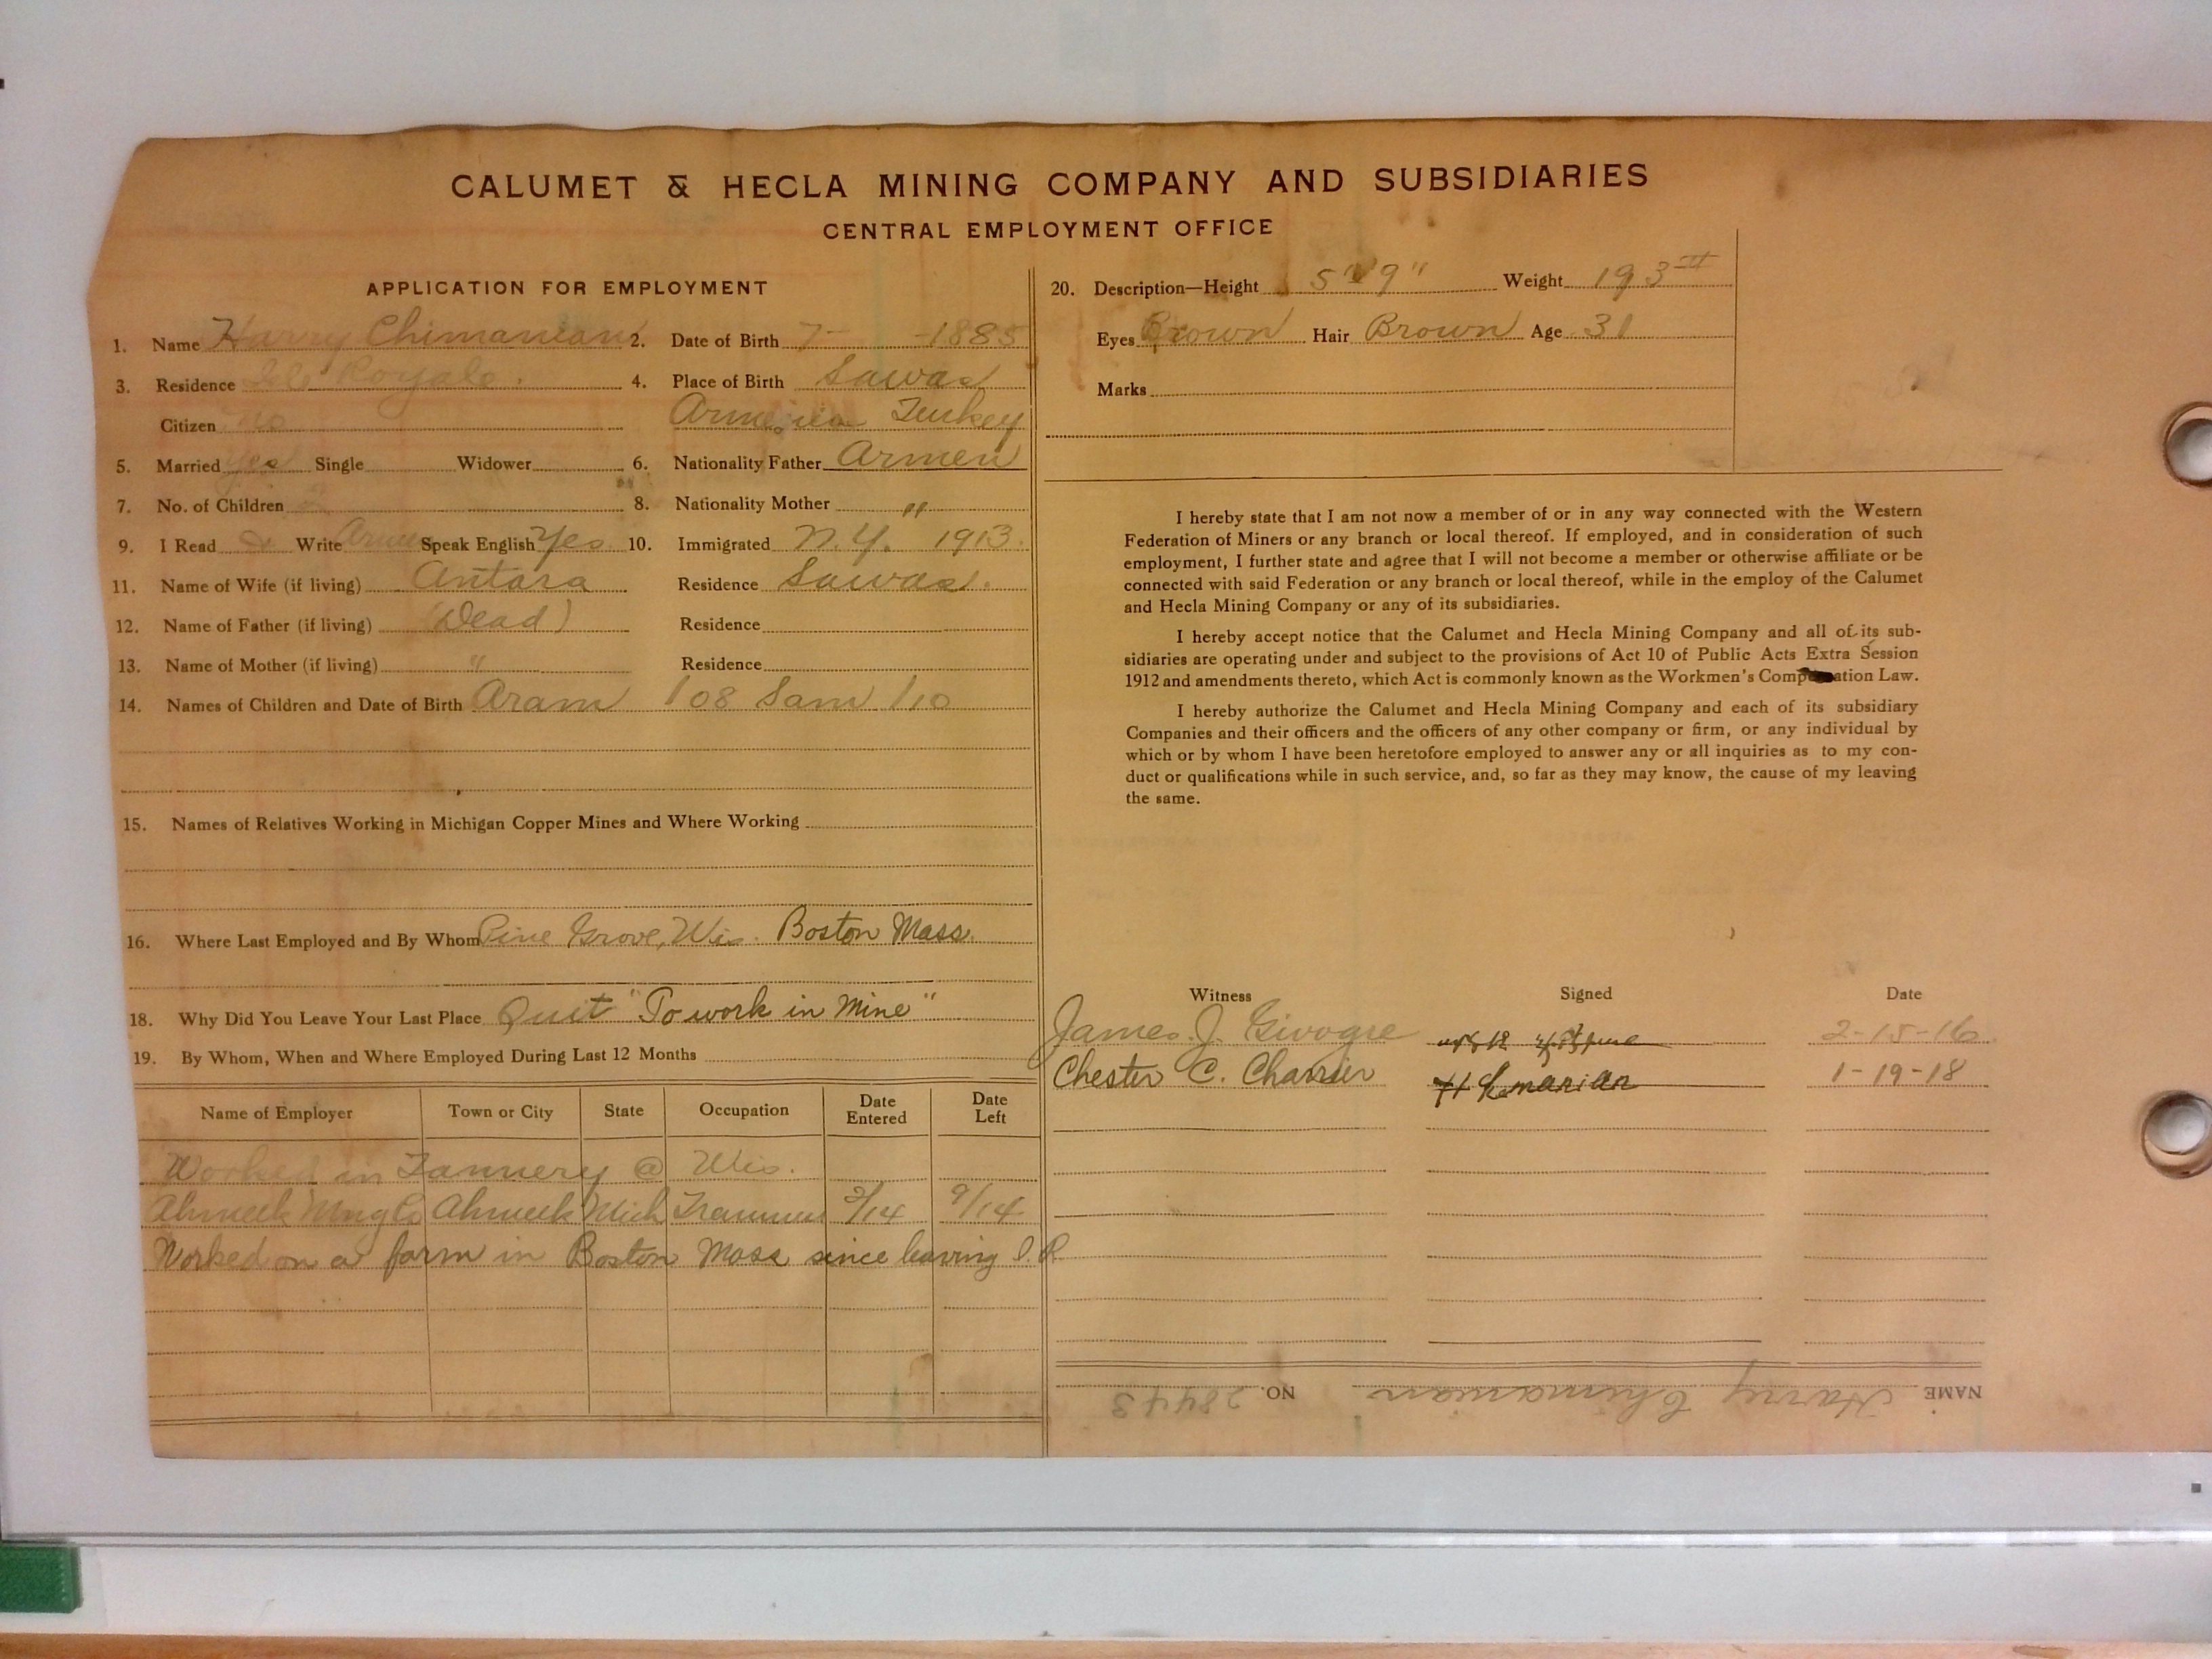 CALUMET & HECLA MINING COMPANY AND SUBSIDIARIES
CENTRAL EMPLOYMENT OFFICE
APPLICATION FOR EMPLOYMENT
1. Name Harry Chimanian 2. Date of Birth 7- -1885
3. Residence Isle Royale. 4. Place of Birth Sawas
Citizen no Armenia Turkey
5. Married yes Single Widower 6. Nationality Father Armen
7. No. of Children 2 8. Nationality Mother "
9. I Read & Write Armen Speak English Yes 10. Immigrated N.Y. 1913.
11. Name of Wife (if living) Antara Residence Sawas.
12. Name of Father (if living) (Dead) Residence
13. Name of Mother (if living) " Residence
14. Names of Children and Date of Birth Aram /08 Sam /10
15. Names of Relatives Working in Michigan Copper Mines and Where Working
16. Where Last Employed and By Whom Pine Grove, Wis. Boston Mass.
18. Why Did You Leave Your Last Place Quit "To work in Mine"
19. By Whom, When and Where Employed During Last 12 Months
Name of Employer Town or City State Occupation Date Entered Date Left
Worked in Tannery @ Wis.
Ahmeek Mng Co Ahmeek Mich Trammer /14 9/14
Worked on a farm in Boston Mass since leaving I.R
20. Description—Height 5' 9" Weight 193#
Eyes Brown Hair Brown Age 31
Marks
I hereby state that I am not now a member of or in any way connected with the Western
Federation of Miners or any branch or local thereof. If employed, and in consideration of such
employment, I further state and agree that I will not become a member or otherwise affiliate or be
connected with said Federation or any branch or local thereof, while in the employ of the Calumet
and Hecla Mining Company or any of its subsidiaries.
I hereby accept notice that the Calumet and Hecla Mining Company and all of its sub-
sidiaries are operating under and subject to the provisions of Act 10 of Public Acts Extra Session
1912 and amendments thereto, which Act is commonly known as the Workmen's Compensation Law.
I hereby authorize the Calumet and Hecla Mining Company and each of its subsidiary
Companies and their officers and the officers of any other company or firm, or any individual by
which or by whom I have been heretofore employed to answer any or all inquiries as to my con-
duct or qualifications while in such service, and, so far as they may know, the cause of my leaving
the same.
Witness Signed Date
James J. Givogre 2-15-16
Chester C. Charrier 1-19-18
NAME Harry Chimanian NO. 28443